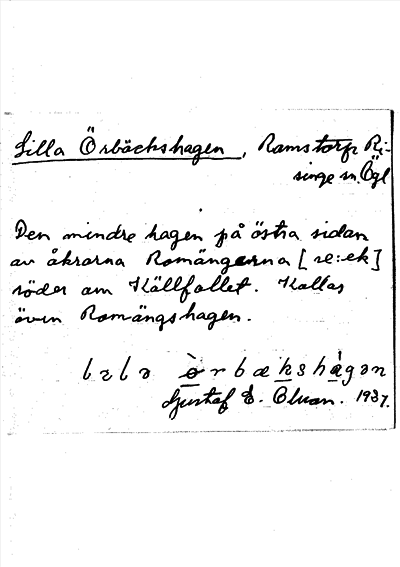 Lilla Örbäckshagen, Ramstorp Ri-
singe sn. Ögl
Den mindre hagen på östra sidan
av åkrarna Romängarna [re:ek]
söder om Källfallet. Kallas
även Romängshagen.
lɩlə òrbækshàgən
Gustaf E. Olsson. 1937.